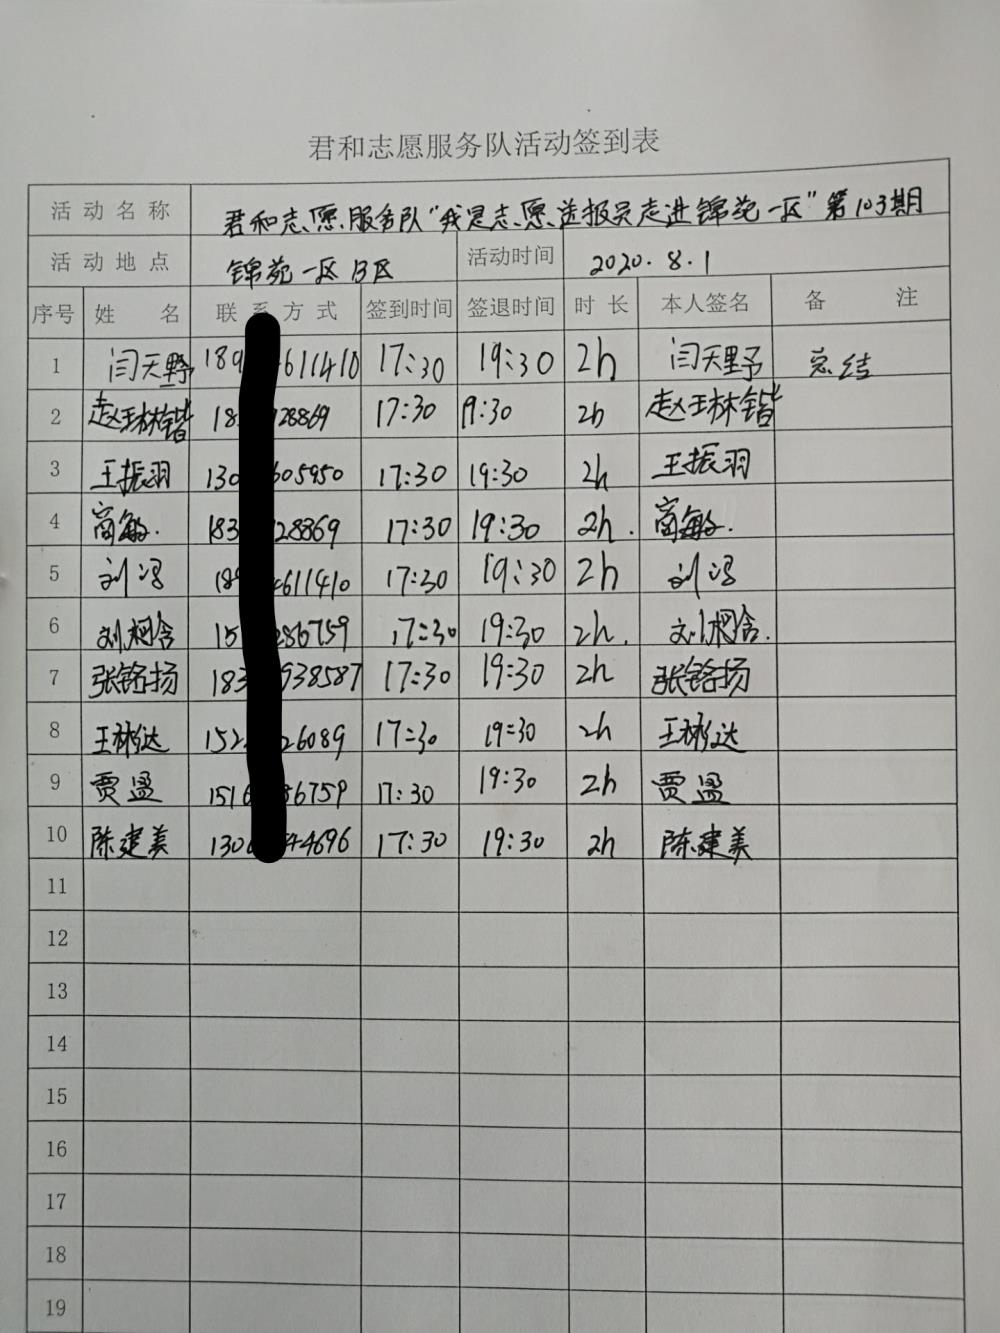 君和志愿服务队活动签到表
活动名称 君和志愿服务队"我是志愿送报员走进锦苑一区"第103期
活动地点 锦苑一区B区 活动时间 2020.8.1
序号 姓名 联系方式 签到时间 签退时间 时长 本人签名 备注
1 闫天野 189 611410 17:30 19:30 2h 闫天野 总结
2 赵王林锴 18 28869 17:30 19:30 2h 赵王林锴
3 王振羽 130 605950 17:30 19:30 2h 王振羽
4 敏. 183 28869 17:30 19:30 2h. 敏.
5 刘冯 189 4611410 17:30 19:30 2h 刘冯
6 刘柯含 15 286759 17:30 19:30 2h. 刘柯含.
7 张铭扬 183 938587 17:30 19:30 2h 张铭扬
8 王彬达 152 26089 17:30 19:30 2h 王彬达
9 贾 1516 86759 17:30 19:30 2h 贾
10 陈建美 130 44696 17:30 19:30 2h 陈建美
11
12
13
14
15
16
17
18
19